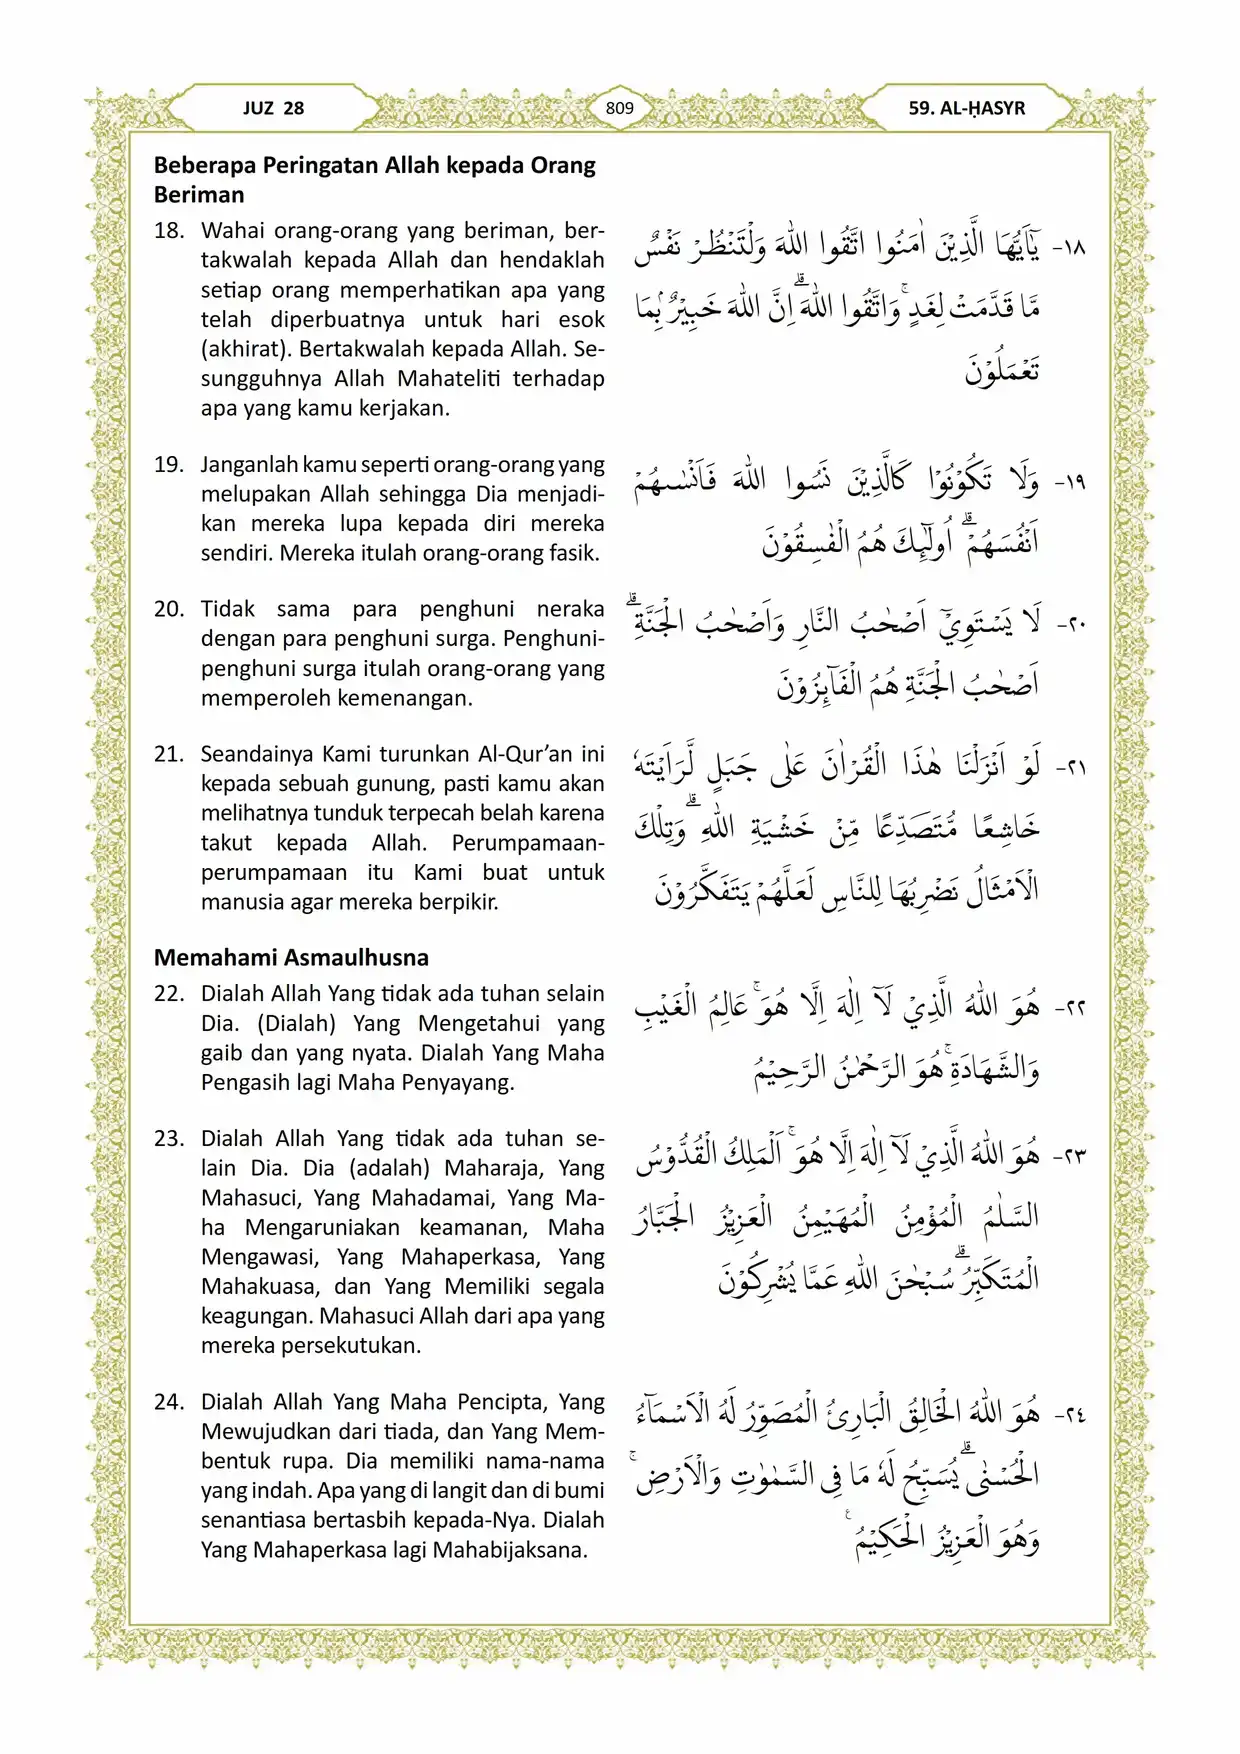 JUZ 28
809
59. AL-ḤASYR
Beberapa Peringatan Allah kepada Orang
Beriman
18. Wahai orang-orang yang beriman, ber-
takwalah kepada Allah dan hendaklah
setiap orang memperhatikan apa yang
telah diperbuatnya untuk hari esok
(akhirat). Bertakwalah kepada Allah. Se-
sungguhnya Allah Mahateliti terhadap
apa yang kamu kerjakan.
١٨- يٰٓاَيُّهَا الَّذِيْنَ اٰمَنُوا اتَّقُوا اللّٰهَ وَلْتَنْظُرْ نَفْسٌ
مَّا قَدَّمَتْ لِغَدٍۚ وَاتَّقُوا اللّٰهَ ۗاِنَّ اللّٰهَ خَبِيْرٌ ۢبِمَا
تَعْمَلُوْنَ
19. Janganlah kamu seperti orang-orang yang
melupakan Allah sehingga Dia menjadi-
kan mereka lupa kepada diri mereka
sendiri. Mereka itulah orang-orang fasik.
١٩- وَلَا تَكُوْنُوْا كَالَّذِيْنَ نَسُوا اللّٰهَ فَاَنْسٰىهُمْ
اَنْفُسَهُمْۗ اُولٰۤىِٕكَ هُمُ الْفٰسِقُوْنَ
20. Tidak sama para penghuni neraka
dengan para penghuni surga. Penghuni-
penghuni surga itulah orang-orang yang
memperoleh kemenangan.
٢٠- لَا يَسْتَوِيْٓ اَصْحٰبُ النَّارِ وَاَصْحٰبُ الْجَنَّةِۗ
اَصْحٰبُ الْجَنَّةِ هُمُ الْفَاۤىِٕزُوْنَ
21. Seandainya Kami turunkan Al-Qur’an ini
kepada sebuah gunung, pasti kamu akan
melihatnya tunduk terpecah belah karena
takut kepada Allah. Perumpamaan-
perumpamaan itu Kami buat untuk
manusia agar mereka berpikir.
٢١- لَوْ اَنْزَلْنَا هٰذَا الْقُرْاٰنَ عَلٰى جَبَلٍ لَّرَاَيْتَهٗ
خَاشِعًا مُّتَصَدِّعًا مِّنْ خَشْيَةِ اللّٰهِ ۗوَتِلْكَ
الْاَمْثَالُ نَضْرِبُهَا لِلنَّاسِ لَعَلَّهُمْ يَتَفَكَّرُوْنَ
Memahami Asmaulhusna
22. Dialah Allah Yang tidak ada tuhan selain
Dia. (Dialah) Yang Mengetahui yang
gaib dan yang nyata. Dialah Yang Maha
Pengasih lagi Maha Penyayang.
٢٢- هُوَ اللّٰهُ الَّذِيْ لَآ اِلٰهَ اِلَّا هُوَۚ عَالِمُ الْغَيْبِ
وَالشَّهَادَةِۚ هُوَ الرَّحْمٰنُ الرَّحِيْمُ
23. Dialah Allah Yang tidak ada tuhan se-
lain Dia. Dia (adalah) Maharaja, Yang
Mahasuci, Yang Mahadamai, Yang Ma-
ha Mengaruniakan keamanan, Maha
Mengawasi, Yang Mahaperkasa, Yang
Mahakuasa, dan Yang Memiliki segala
keagungan. Mahasuci Allah dari apa yang
mereka persekutukan.
٢٣- هُوَ اللّٰهُ الَّذِيْ لَآ اِلٰهَ اِلَّا هُوَ ۚ اَلْمَلِكُ الْقُدُّوْسُ
السَّلٰمُ الْمُؤْمِنُ الْمُهَيْمِنُ الْعَزِيْزُ الْجَبَّارُ
الْمُتَكَبِّرُۗ سُبْحٰنَ اللّٰهِ عَمَّا يُشْرِكُوْنَ
24. Dialah Allah Yang Maha Pencipta, Yang
Mewujudkan dari tiada, dan Yang Mem-
bentuk rupa. Dia memiliki nama-nama
yang indah. Apa yang di langit dan di bumi
senantiasa bertasbih kepada-Nya. Dialah
Yang Mahaperkasa lagi Mahabijaksana.
٢٤- هُوَ اللّٰهُ الْخَالِقُ الْبَارِئُ الْمُصَوِّرُ لَهُ الْاَسْمَاۤءُ
الْحُسْنٰىۗ يُسَبِّحُ لَهٗ مَا فِى السَّمٰوٰتِ وَالْاَرْضِۚ
وَهُوَ الْعَزِيْزُ الْحَكِيْمُ ࣖ